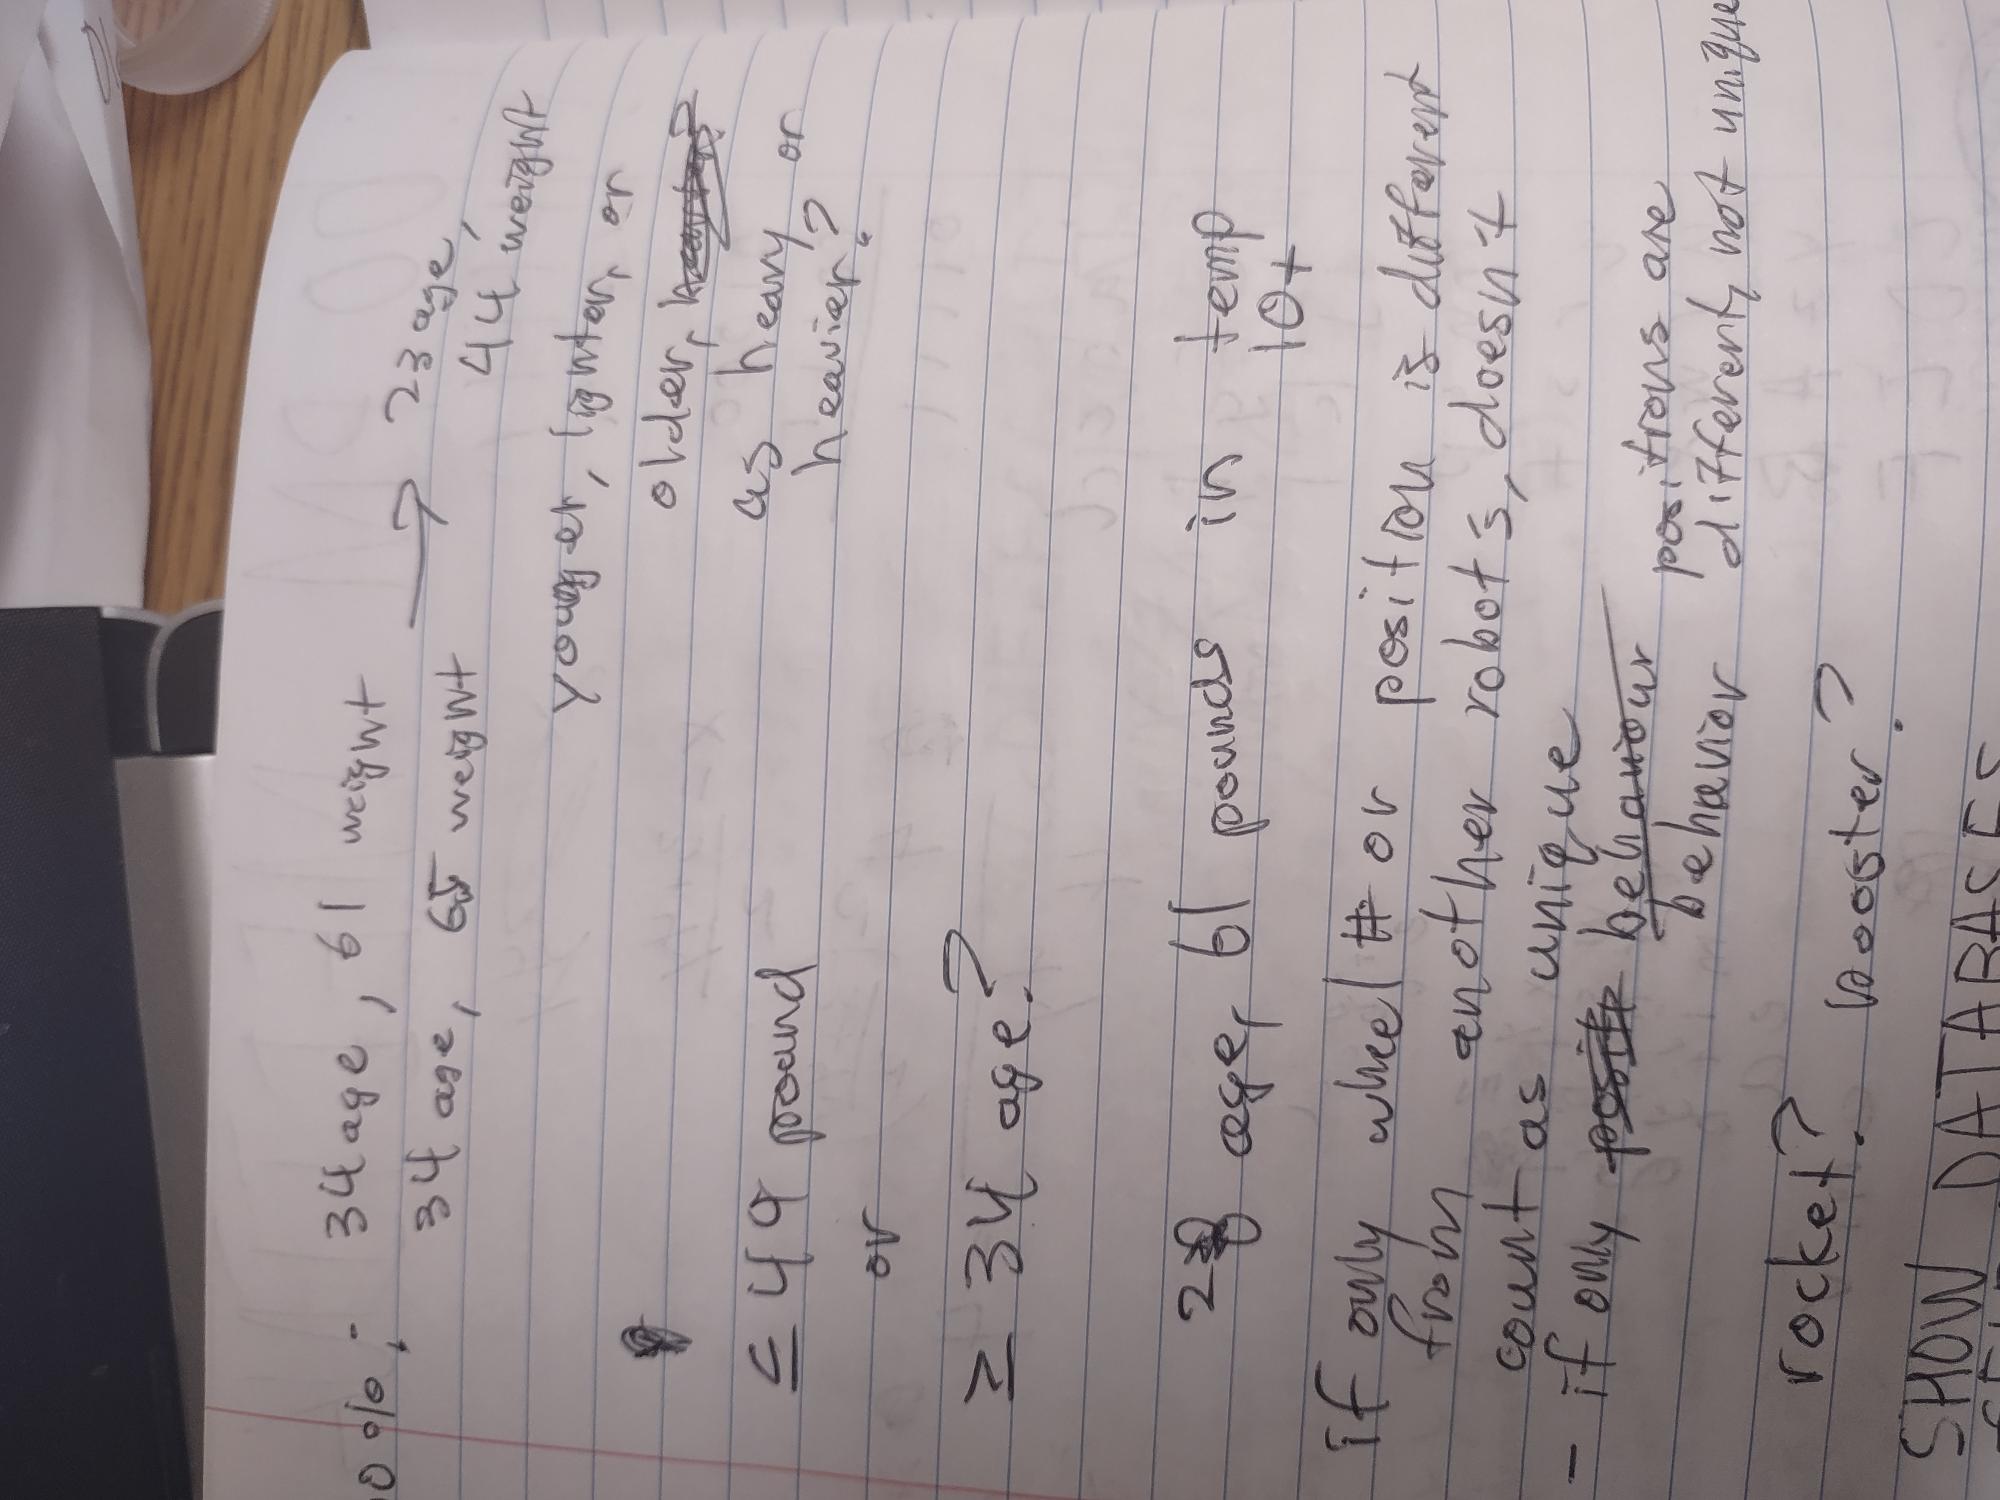 0 %: 34 age, 61 weight
34 age, 65 weight → 23 age,
44 weight
younger, lighter, or
older,
as heavy or
heavier?
≤ 49 pound
or
≥ 34 age?
age, 61 pounds in temp
10+
if only wheel # or position is different
from another robots, doesn't
count as unique
- if only behaviour positions are
behavior different, not unique
rocket? booster?
SHOW DATABASES